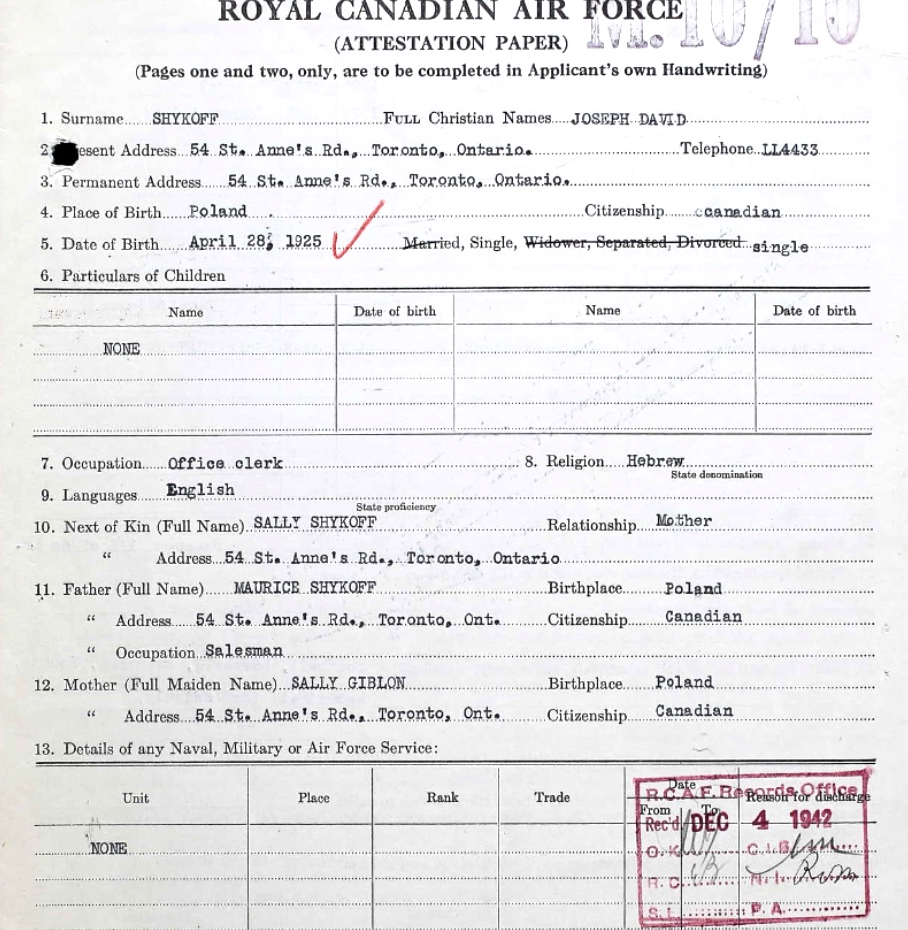 ROYAL CANADIAN AIR FORCE
(ATTESTATION PAPER)
(Pages one and two, only, are to be completed in Applicant's own Handwriting)
1. Surname SHYKOFF FULL Christian Names JOSEPH DAVID
2 esent Address 54 St. Anne's Rd., Toronto, Ontario. Telephone LL4433
3. Permanent Address 54 St. Anne's Rd., Toronto, Ontario.
4. Place of Birth Poland Citizenship canadian
5. Date of Birth April 28, 1925 Married, Single, Widower, Separated, Divorced single
6. Particulars of Children
Name Date of birth Name Date of birth
NONE
7. Occupation Office clerk 8. Religion Hebrew
State denomination
9. Languages English
State proficiency
10. Next of Kin (Full Name) SALLY SHYKOFF Relationship Mother
" Address 54 St. Anne's Rd., Toronto, Ontario
11. Father (Full Name) MAURICE SHYKOFF Birthplace Poland
" Address 54 St. Anne's Rd., Toronto, Ont. Citizenship Canadian
" Occupation Salesman
12. Mother (Full Maiden Name) SALLY GIBLON Birthplace Poland
" Address 54 St. Anne's Rd., Toronto, Ont. Citizenship Canadian
13. Details of any Naval, Military or Air Force Service:
Unit Place Rank Trade Date Reason for discharge
From To
NONE
R.C.A.F. Records Office
Rec'd DEC 4 1942
O.K. C.I.B.
R.C. N.I. Ross
S.L. P.A.